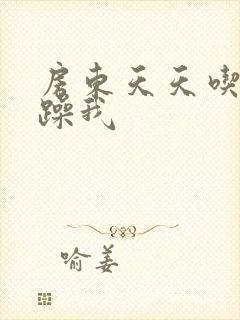 房东天天喫
躁我
喻姜